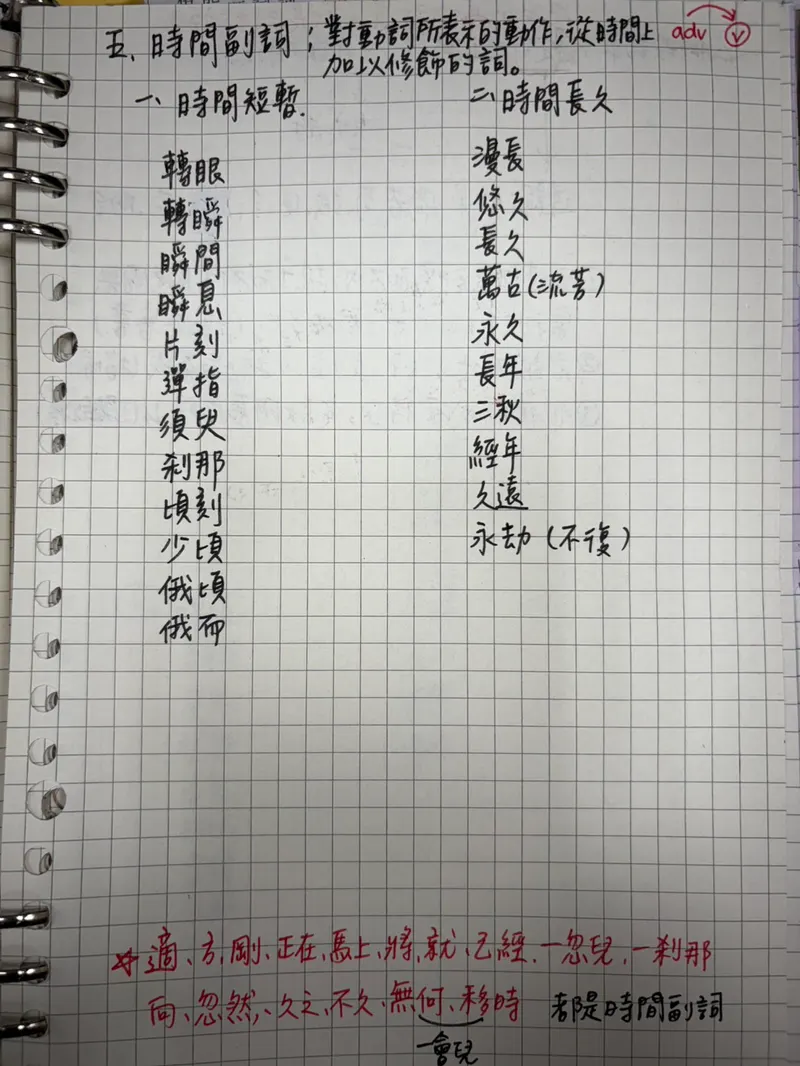 五、時間副詞；對動詞所表示的動作,從時間上 adv ⓥ
加以修飾的詞。
一、時間短暫.
轉眼
轉瞬
瞬間
瞬息
片刻
彈指
須臾
刹那
頃刻
少頃
俄頃
俄而
二、時間長久
漫長
悠久
長久
萬古(流芳)
永久
長年
三秋
經年
久遠
永劫(不復)
適、方、剛、正在、馬上、將、就、已經、一忽兒、一刹那
向、忽然、久之、不久、無何、移時 都是時間副詞
一會兒